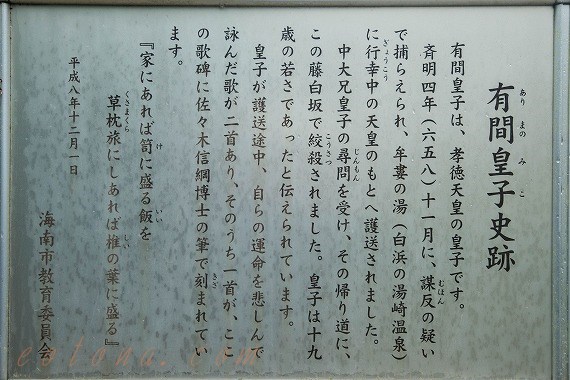 有間皇子史跡
ありまのみこ
有間皇子は、孝徳天皇の皇子です。
斉明四年(六五八)十一月に、謀反の疑い
むほん
で捕らえられ、牟婁の湯(白浜の湯崎温泉)
に行幸中の天皇のもとへ護送されました。
ぎょうこう
中大兄皇子の尋問を受け、その帰り道に、
じんもん
この藤白坂で絞殺されました。皇子は十九
こうさつ
歳の若さであったと伝えられています。
皇子が護送途中、自らの運命を悲しんで
詠んだ歌が二首あり、そのうち一首が、ここ
の歌碑に佐々木信綱博士の筆で刻まれてい
きざ
ます。
『家にあれば笥に盛る飯を
け いい
草枕旅にしあれば椎の葉に盛る』
くさまくら しい
平成八年十二月一日
海南市教育委員会